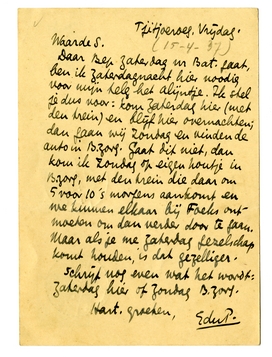 Tjitjoeroeg, Vrijdag.
(15-4-'37)
Waarde S.
Daar Bep Zaterdag in Bat. gaat,
ben ik Zaterdagnacht hier noodig
voor mijn tele het Alijntje. Ik stel
je dus voor: kom Zaterdag hier (met
den trein) en blijf hier overnachten;
dan gaan wij Zondag en vinden de
auto in B.zorg. Gaat dit niet, dan
kom ik Zondag op eigen houtje in
B.zorg, met den trein die daar om
5 voor 10 's morgens aankomt en
we kunnen elkaar bij Foeks ont-
moeten om dan verder door te gaan.
Maar als je me Zaterdag gezelschap
komt houden, is dat gezelliger.
Schrijf nog even wat het wordt:
Zaterdag hier of Zondag B.zorg.
Hart. groeten,
EduP.